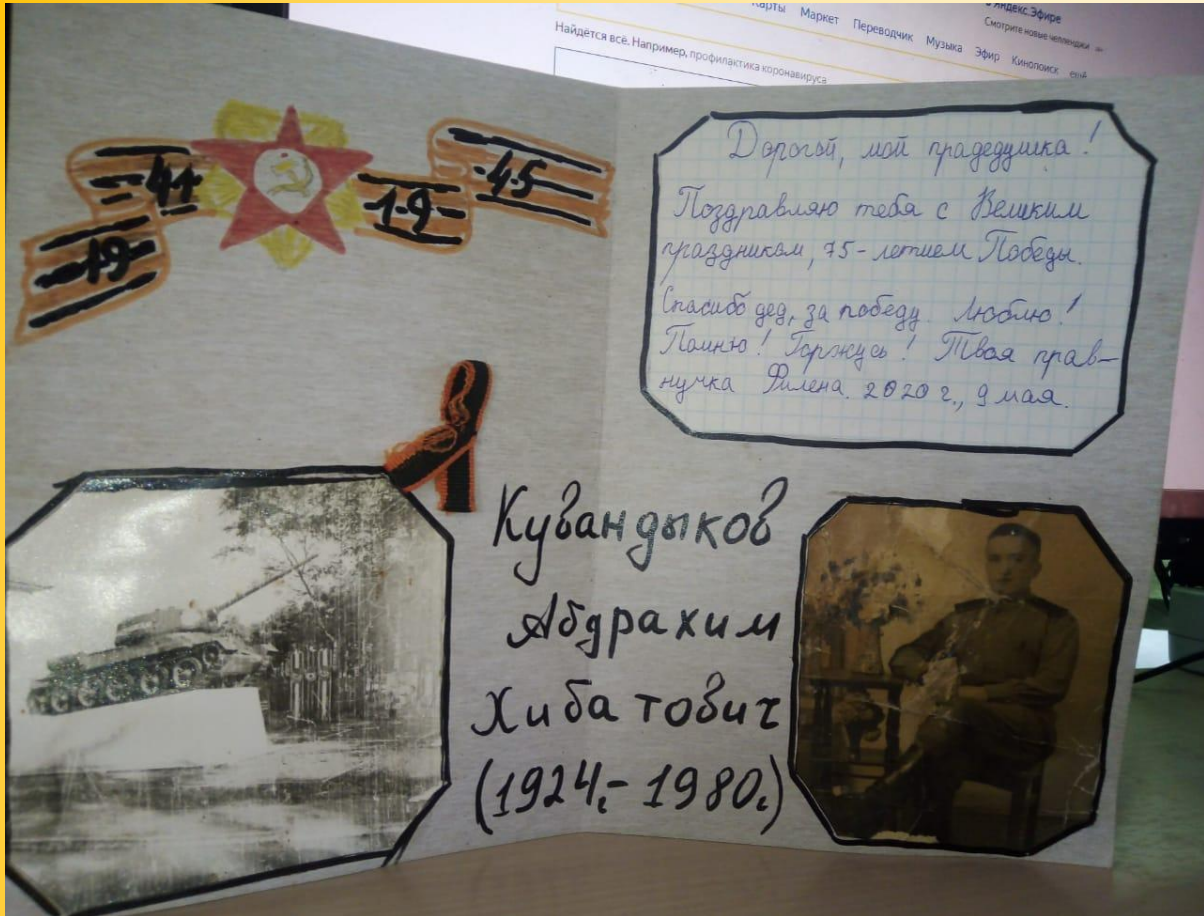 Карты Маркет Переводчик Музыка Эфир Кинопоиск ещё
в Яндекс.Эфире
Смотрите новые челленджи
Найдётся всё. Например, профилактика коронавируса
19 41 19 45
Дорогой, мой прадедушка!
Поздравляю тебя с Великим
праздником, 75-летием Победы.
Спасибо дед, за победу. Люблю!
Помню! Горжусь! Твоя прав-
нучка Филена. 2020 г., 9 мая.
Кувандыков
Абдрахим
Хибатович
(1924г.-1980г.)